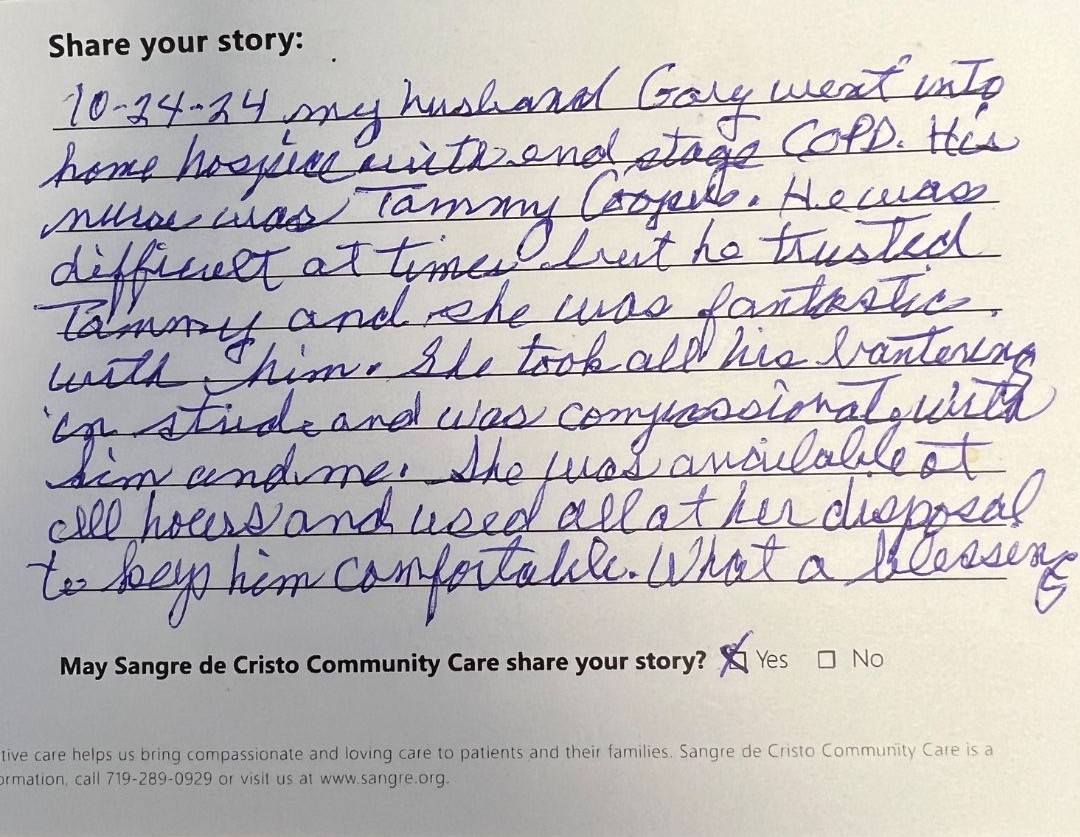 Share your story:
10-24-24 my husband Gary went into
home hospice with end stage COPD. His
nurse was Tammy. He was
difficult at times but he trusted
Tammy and she was fantastic
with him. She took all his bantering
in stride and was compassionate with
him and me. She was available at
all hours and used all at her disposal
to keep him comfortable. What a blessing
May Sangre de Cristo Community Care share your story? Yes No
tive care helps us bring compassionate and loving care to patients and their families. Sangre de Cristo Community Care is a
ormation, call 719-289-0929 or visit us at www.sangre.org.